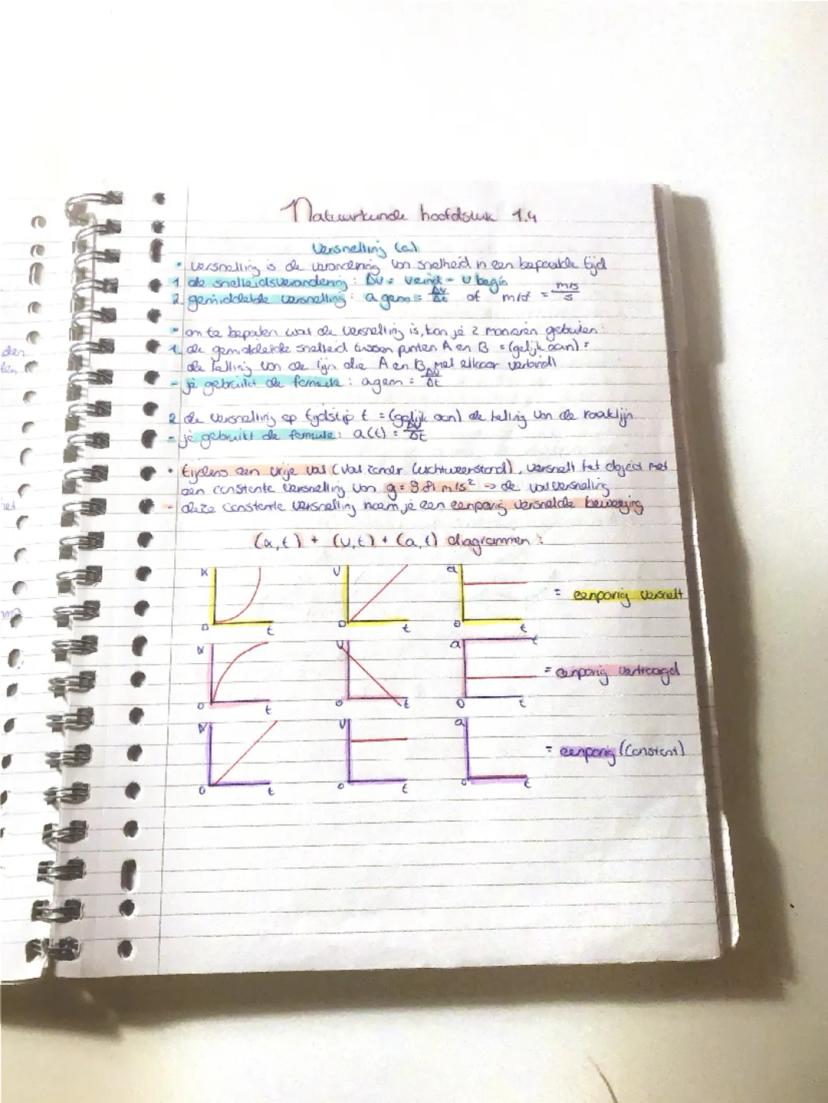 Natuurkunde hoofdstuk 1.4
Versnelling (a)
• versnelling is de verandering van snelheid in een bepaalde tijd
1. de snelheidsverandering: Δv = v eind - v begin
2. gemiddelde versnelling: a gem = Δv/Δt of m/s² = m/s / s
• om te bepalen wat de versnelling is, kan je 2 manieren gebruiken:
1. de gemiddelde snelheid tussen punten A en B = (gelijk aan) =
de helling van de lijn die A en B met elkaar verbindt
- je gebruikt de formule: a gem = Δv/Δt
2. de versnelling op tijdstip t = (gelijk aan) de helling van de raaklijn
- je gebruikt de formule: a(t) = Δv/Δt
• tijdens een vrije val (val zonder luchtweerstand), versnelt het object met
een constante versnelling van g = 9.81 m/s² → de valversnelling
- deze constante versnelling noem je een eenparig versnelde beweging
(x,t) + (v,t) + (a,t) diagrammen:
x 0 t v 0 t a 0 t = eenparig versnelt
x 0 t v 0 t a 0 t = eenparig vertraagd
x 0 t v 0 t a 0 t = eenparig (constant)